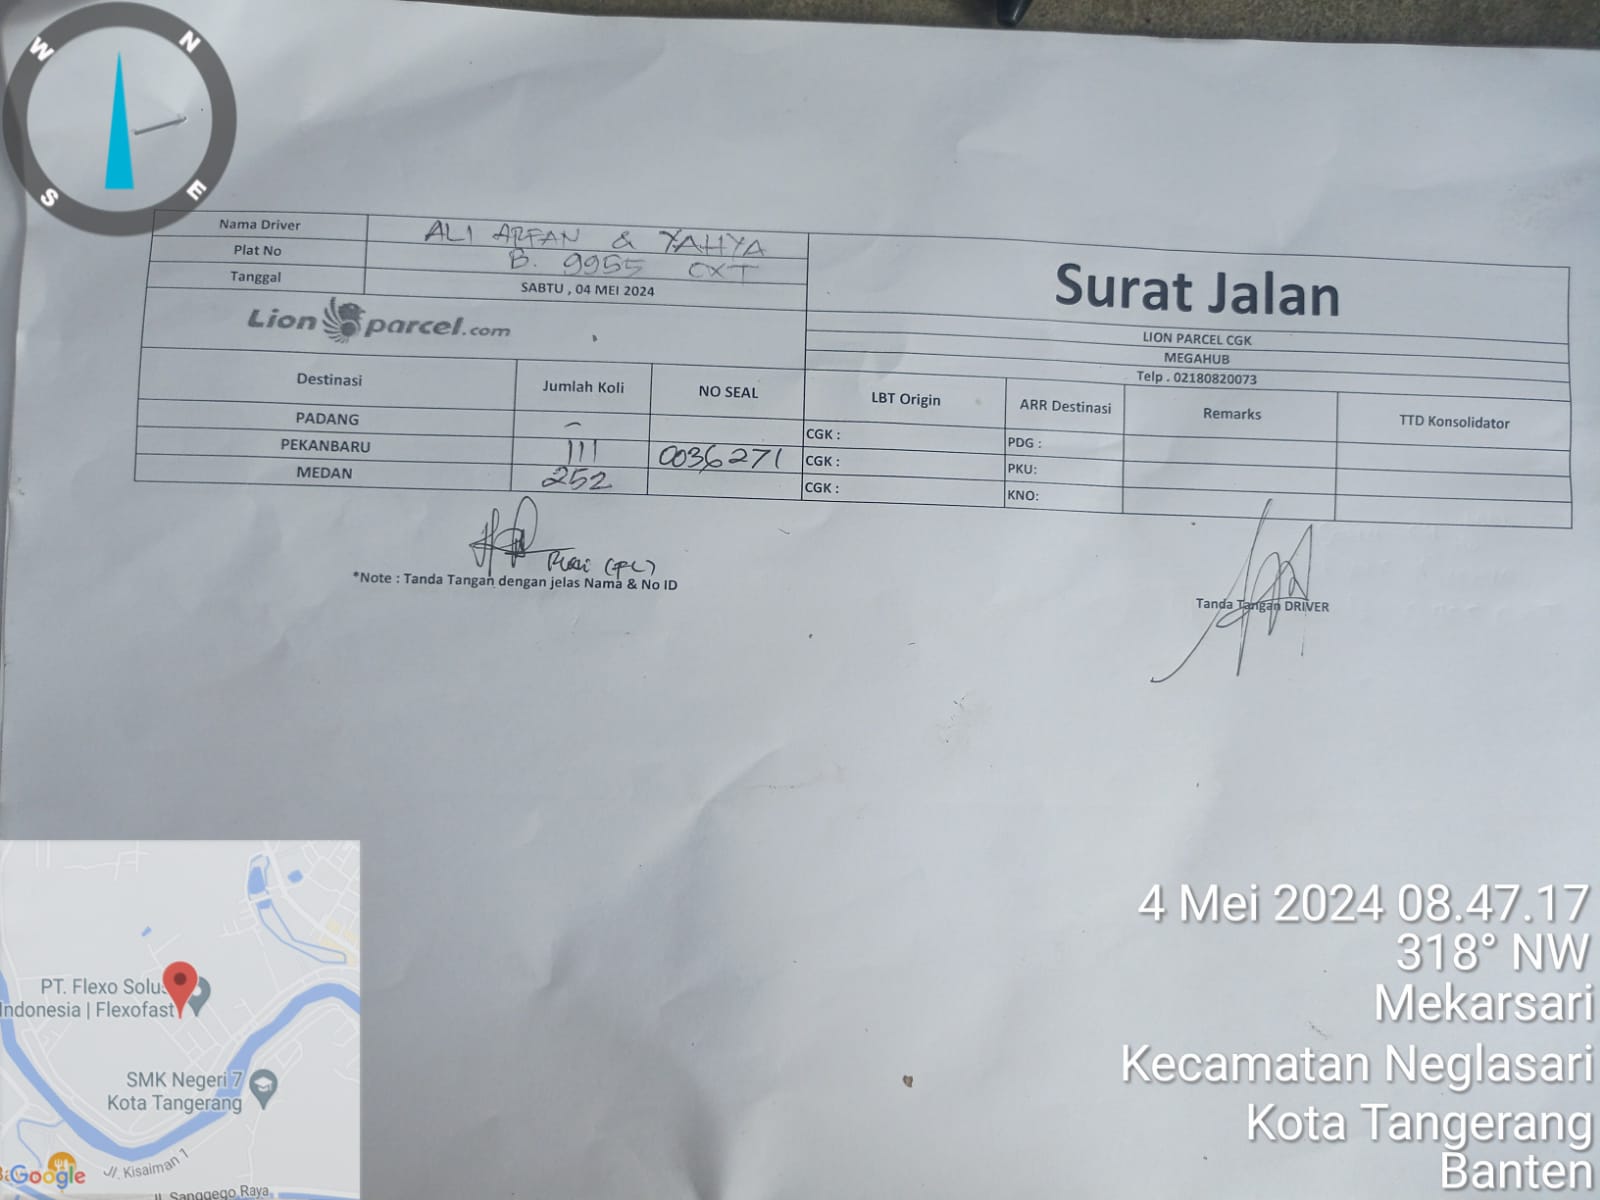 W
N
S
E
Nama Driver ALI ARFAN & YAHYA
Plat No B. 9955 CXT
Tanggal SABTU , 04 MEI 2024
Surat Jalan
Lion parcel.com
LION PARCEL CGK
MEGAHUB
Telp . 02180820073
Destinasi Jumlah Koli NO SEAL LBT Origin ARR Destinasi Remarks TTD Konsolidator
PADANG - CGK : PDG :
PEKANBARU 111 0036271 CGK : PKU:
MEDAN 252 CGK : KNO:
*Note : Tanda Tangan dengan jelas Nama & No ID
Tanda Tangan DRIVER
PT. Flexo Solus
Indonesia | Flexofast
SMK Negeri 7
Kota Tangerang
Jl. Kisaiman 1
Google
Jl. Sanggego Raya
4 Mei 2024 08.47.17
318° NW
Mekarsari
Kecamatan Neglasari
Kota Tangerang
Banten